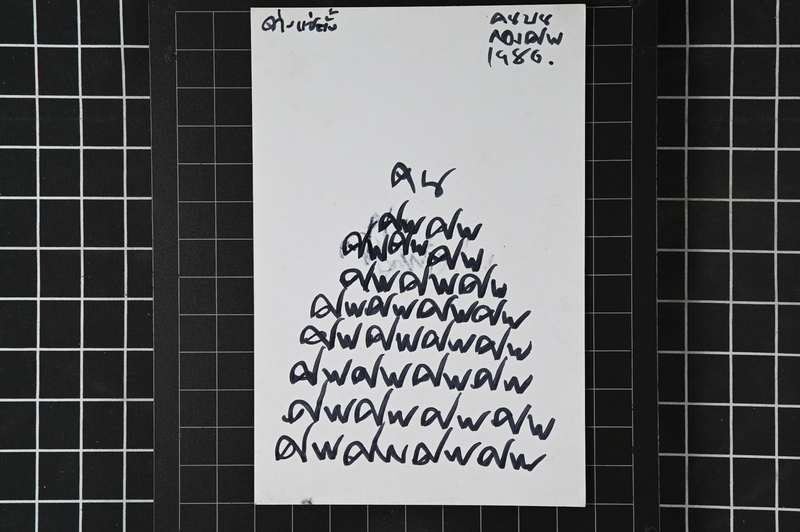 จ่าง แซ่ตั้ง
คนบน
กองศพ
1986.
คน
ศพศพ
ศพศพศพ
ศพศพศพ
ศพศพศพศพ
ศพศพศพศพ
ศพศพศพศพ
ศพศพศพศพ
ศพศพศพศพ